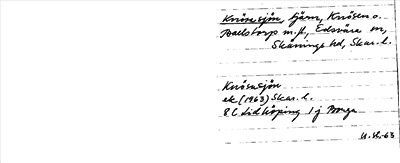 Knösesjön, tjärn, Knösen o.
Backtorp m.fl., Edsvära sn,
Skånings hd, Skar. l.
Knösasjön
ek (1963) Skar. l.
8C Lidköping 1j Borga
U.Ö.-63